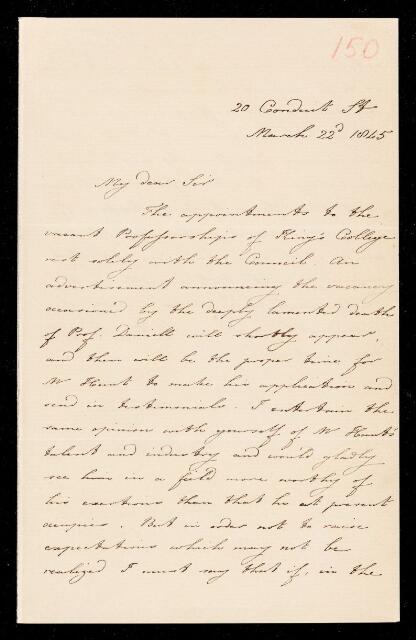 150
20 Conduit St
March 22d 1845
My dear Sir
The appointments to the
vacant Professorships of King's College
rest solely with the Council. An
advertisement announcing the vacancy
occasioned by the deeply lamented death
of Prof. Daniell will shortly appear,
and then will be the proper time for
Mr Hunt to make his application and
send in testimonials. I entertain the
same opinion with yourself of Mr Hunt's
talent and industry and would gladly
see him in a field more worthy of
his exertions than that he at present
occupies. But in order not to raise
expectations which may not be
realized I must say that if, in the